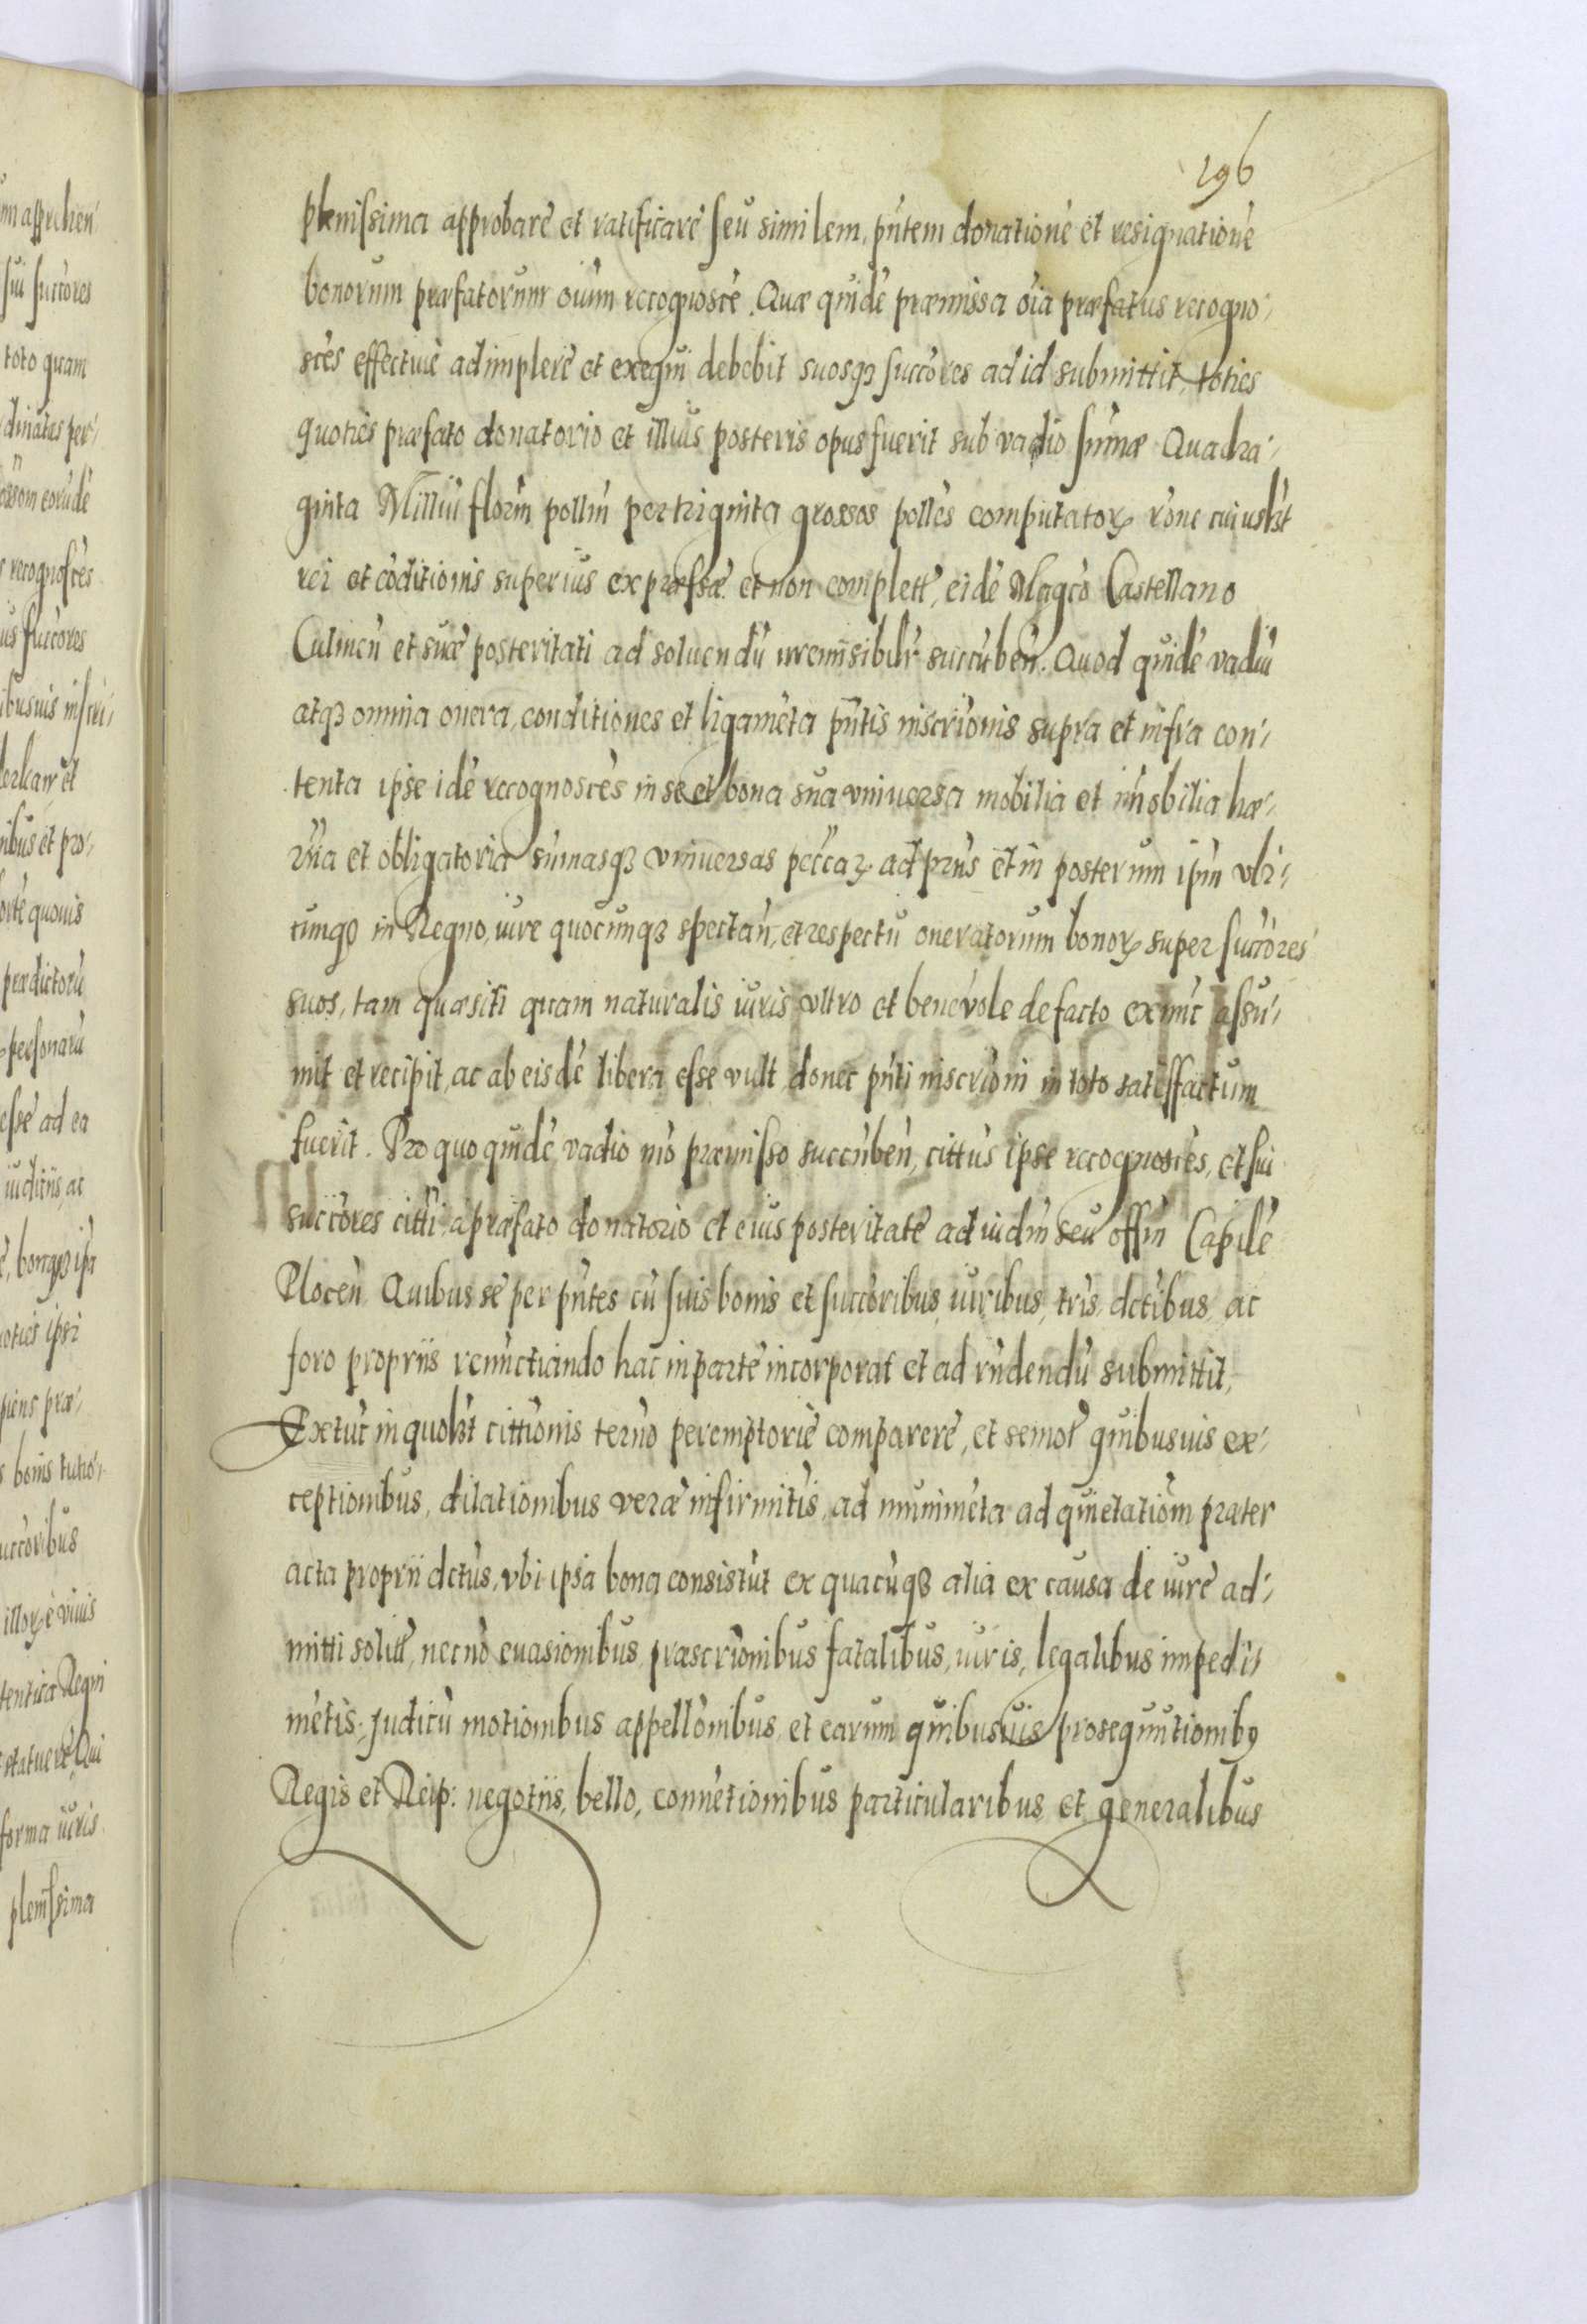 196
plenissima approbare et ratificare seu similem, pn̄tem donationē et resignationē
bonorum præfatorum oīum recognoscē. Quæ quidē præmissa oīa præfatus recogno-
scēs effectiuè adimplere et exequi debebit suosq; succōres ad id submittit, toties
quoties præfato donatorio et illius posteris opus fuerit sub vadio sūmæ Quadra-
ginta Milliū florīn pollīn per triginta grossos pollēs computatoꝝ rōne cuiuslꝫt
rei et cōditionis superius expressæ et non complett̄, eidē Magcō Castellano
Culmēn et suæ posteritati ad soluendū irremissibilr̄ succūbēn. Quod quidē vadiū
atq; omnia onera, conditiones et ligamēta pn̄tis inscrīonis supra et infra con-
tenta ipse idē recognoscēs in se et bona sua vniuersa mobilia et im̄obilia hæ-
rīia et obligatoria sūmasq; vniuersas peccaꝝ ad prn̄s et in posterum ipm̄ vbi-
cunq; in Regno, iure quocunq; spectān, et respectu oneratorum bonoꝝ super succōres
suos, tam quæsiti quam naturalis iuris vltro et beneuole de facto ex nūc assu-
mit et recipit, ac ab eisdē libera esse vult, donec pn̄ti inscrīoni in toto satisfactum
fuerit. Pro quo quidē vadio mō præmisso succūbēn, cittūs ipse recognoscēs, et sui
succōres citti a præfato donatorio et eius posteritate ad iudm̄ seu offm̄ Capilē
Plocēn Quibus se per pn̄tes cū suis bonis et succōribus, iuribus, trīs, dctībus, ac
foro propriis renūctiando hac in parte incorporat et ad rn̄dendū submittit,
Ex tūc in quolꝫt cittīonis termō peremptoriè comparere, et semot̄ quibusuis ex-
ceptionibus, dilationibus veræ infirmitīs, ad munimēta ad quietatiōm præter
acta proprii dctūs, vbi ipsa bona consistūt ex quacūq; alia ex causa de iure ad-
mitti solitt̄, necnō euasionibus, præscrīonibus fatalibus, iuris, legalibus impedi-
mētis, Judicū motionibus appellōnibus, et earum quibusuis prosequutionibꝰ
Regis et Reip: negotiis, bello, conuētionibus particularibus et generalibus